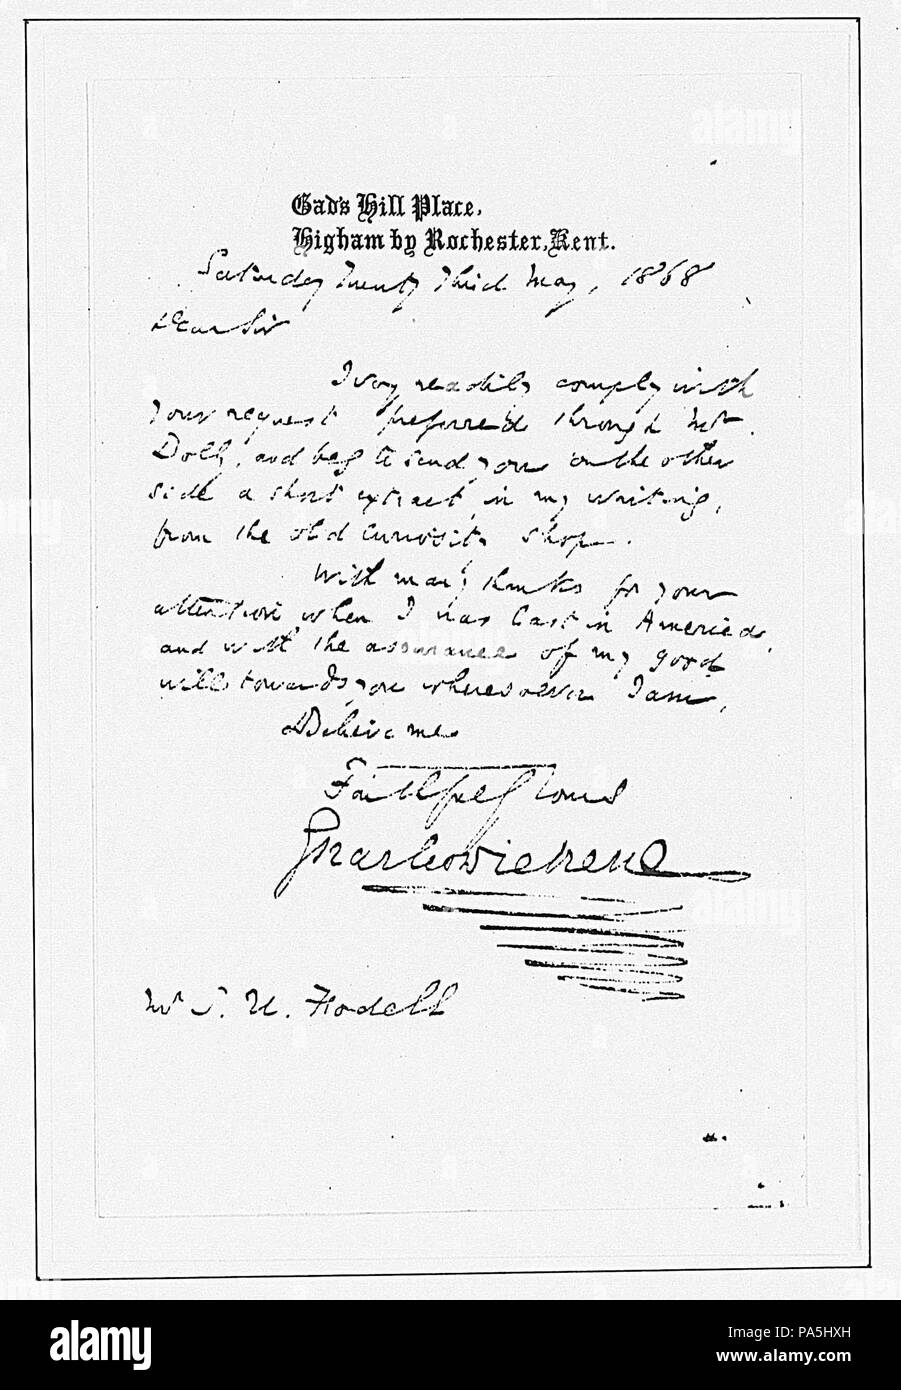 Gad's Hill Place,
Higham by Rochester, Kent.
Saturday Twenty Third May, 1868
Dear Sir
I very readily comply with
your request preferred through Mr.
Dolby, and beg to send you on the other
side a short extract, in my writing,
from the Old Curiosity Shop.
With many thanks for your
attention when I was last in America,
and with the assurance of my good
will towards you wheresoever I am,
Believe me
Faithfully Yours
Charles Dickens
Mr
alamy
alamy
alamy
alamy
alamy
alamy
Image ID: PA5HXH
www.alamy.com